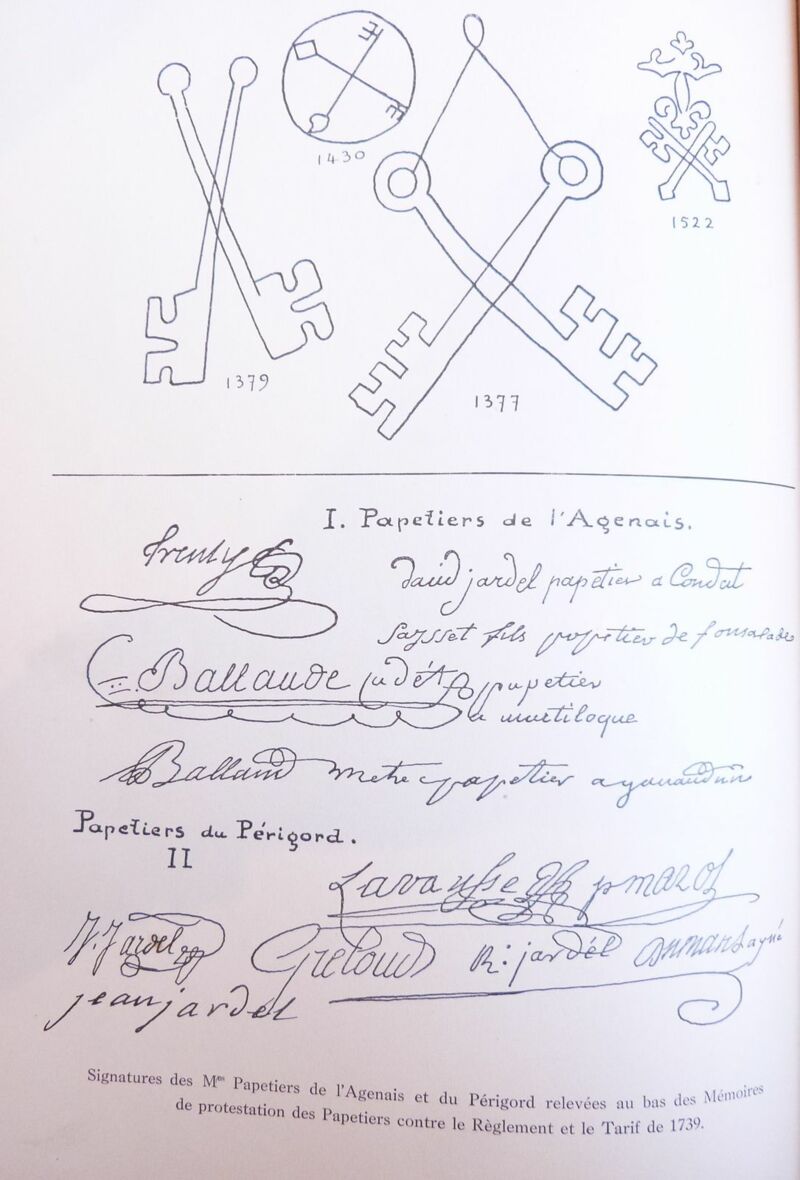 1430
1522
1379
1377
I. Papetiers de l'Agenais.
david jardel papetier a Condat
Saysset fils papetier de
Ballande papetier
Balland metre papetier a
Papetiers du Périgord.
II
Lavausse
J. Jardel
Greloud
R: jardél
jean jardel
Signatures des Mes Papetiers de l'Agenais et du Périgord relevées au bas des Mémoires
de protestation des Papetiers contre le Règlement et le Tarif de 1739.